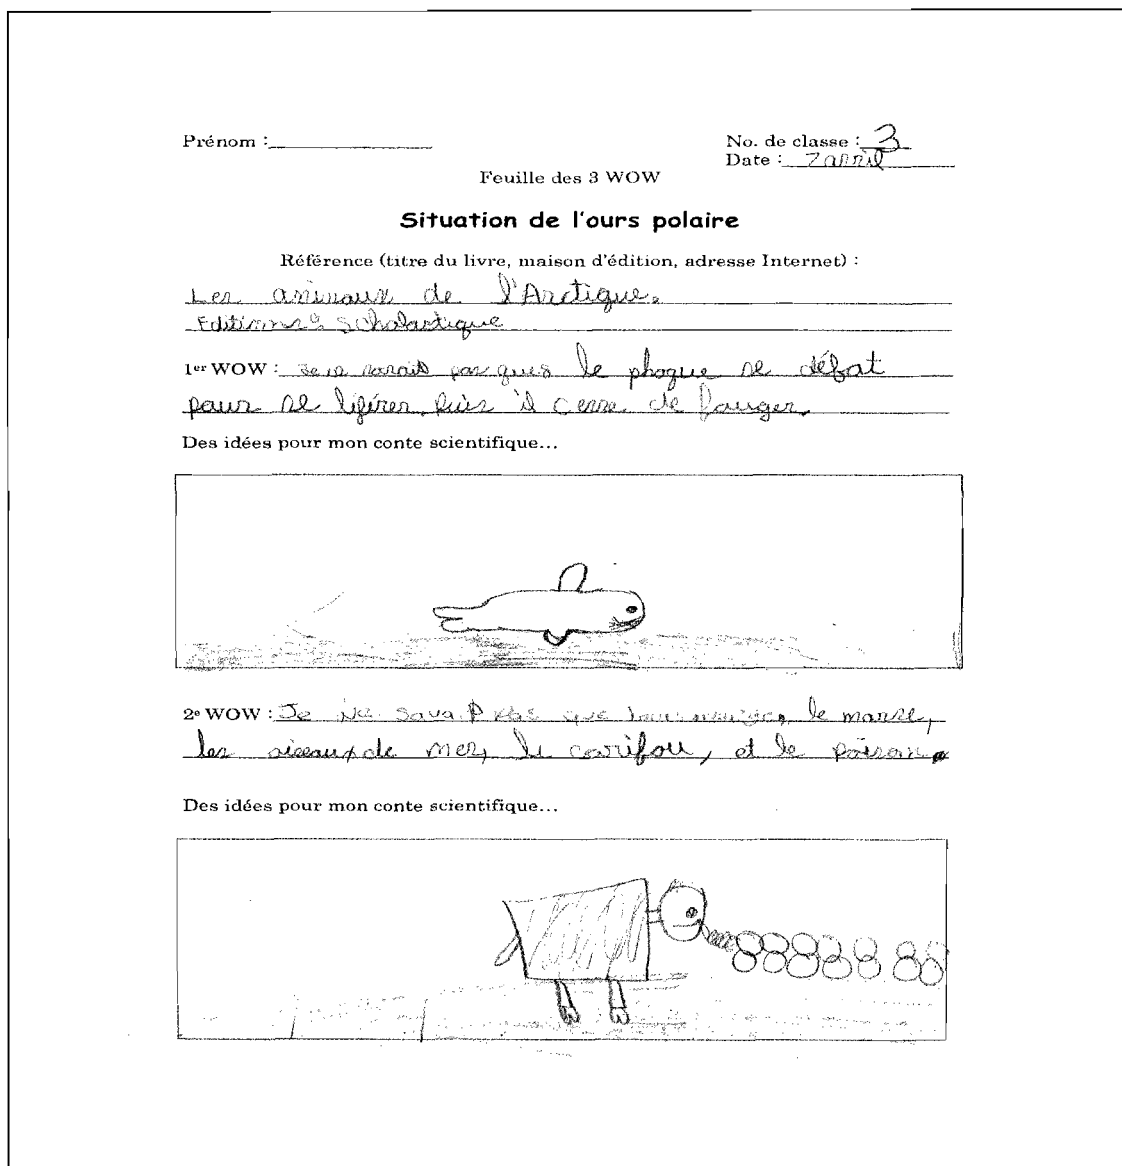 Prénom :
No. de classe : 3
Date : 7 avril
Feuille des 3 WOW
Situation de l'ours polaire
Référence (titre du livre, maison d'édition, adresse Internet) :
Les animaux de l'Arctique.
Editions Scholastique
1er WOW : Je ne savait pas que le phoque se défat
pour se liférer puis il cesse de fouger.
Des idées pour mon conte scientifique...
2e WOW : Je ne savait pas que le morse,
les oiseaux de mer, le carifou, et le poison.
Des idées pour mon conte scientifique...